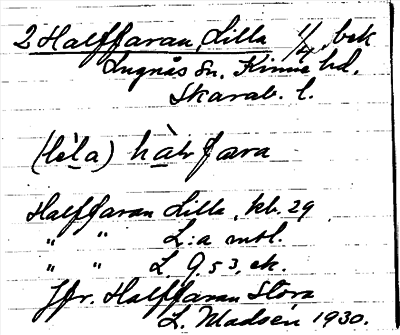 2 Halffaran, Lilla 1/4, bek
Lugnås sn. Kinne hd.
Skarab. l.
(lèla) hàlvfara
Halffaran Lilla, kb. 29
" " L:a mtl.
" " L. 9.53, ek.
Jfr. Halffaran Stora
L. Madsén 1930.